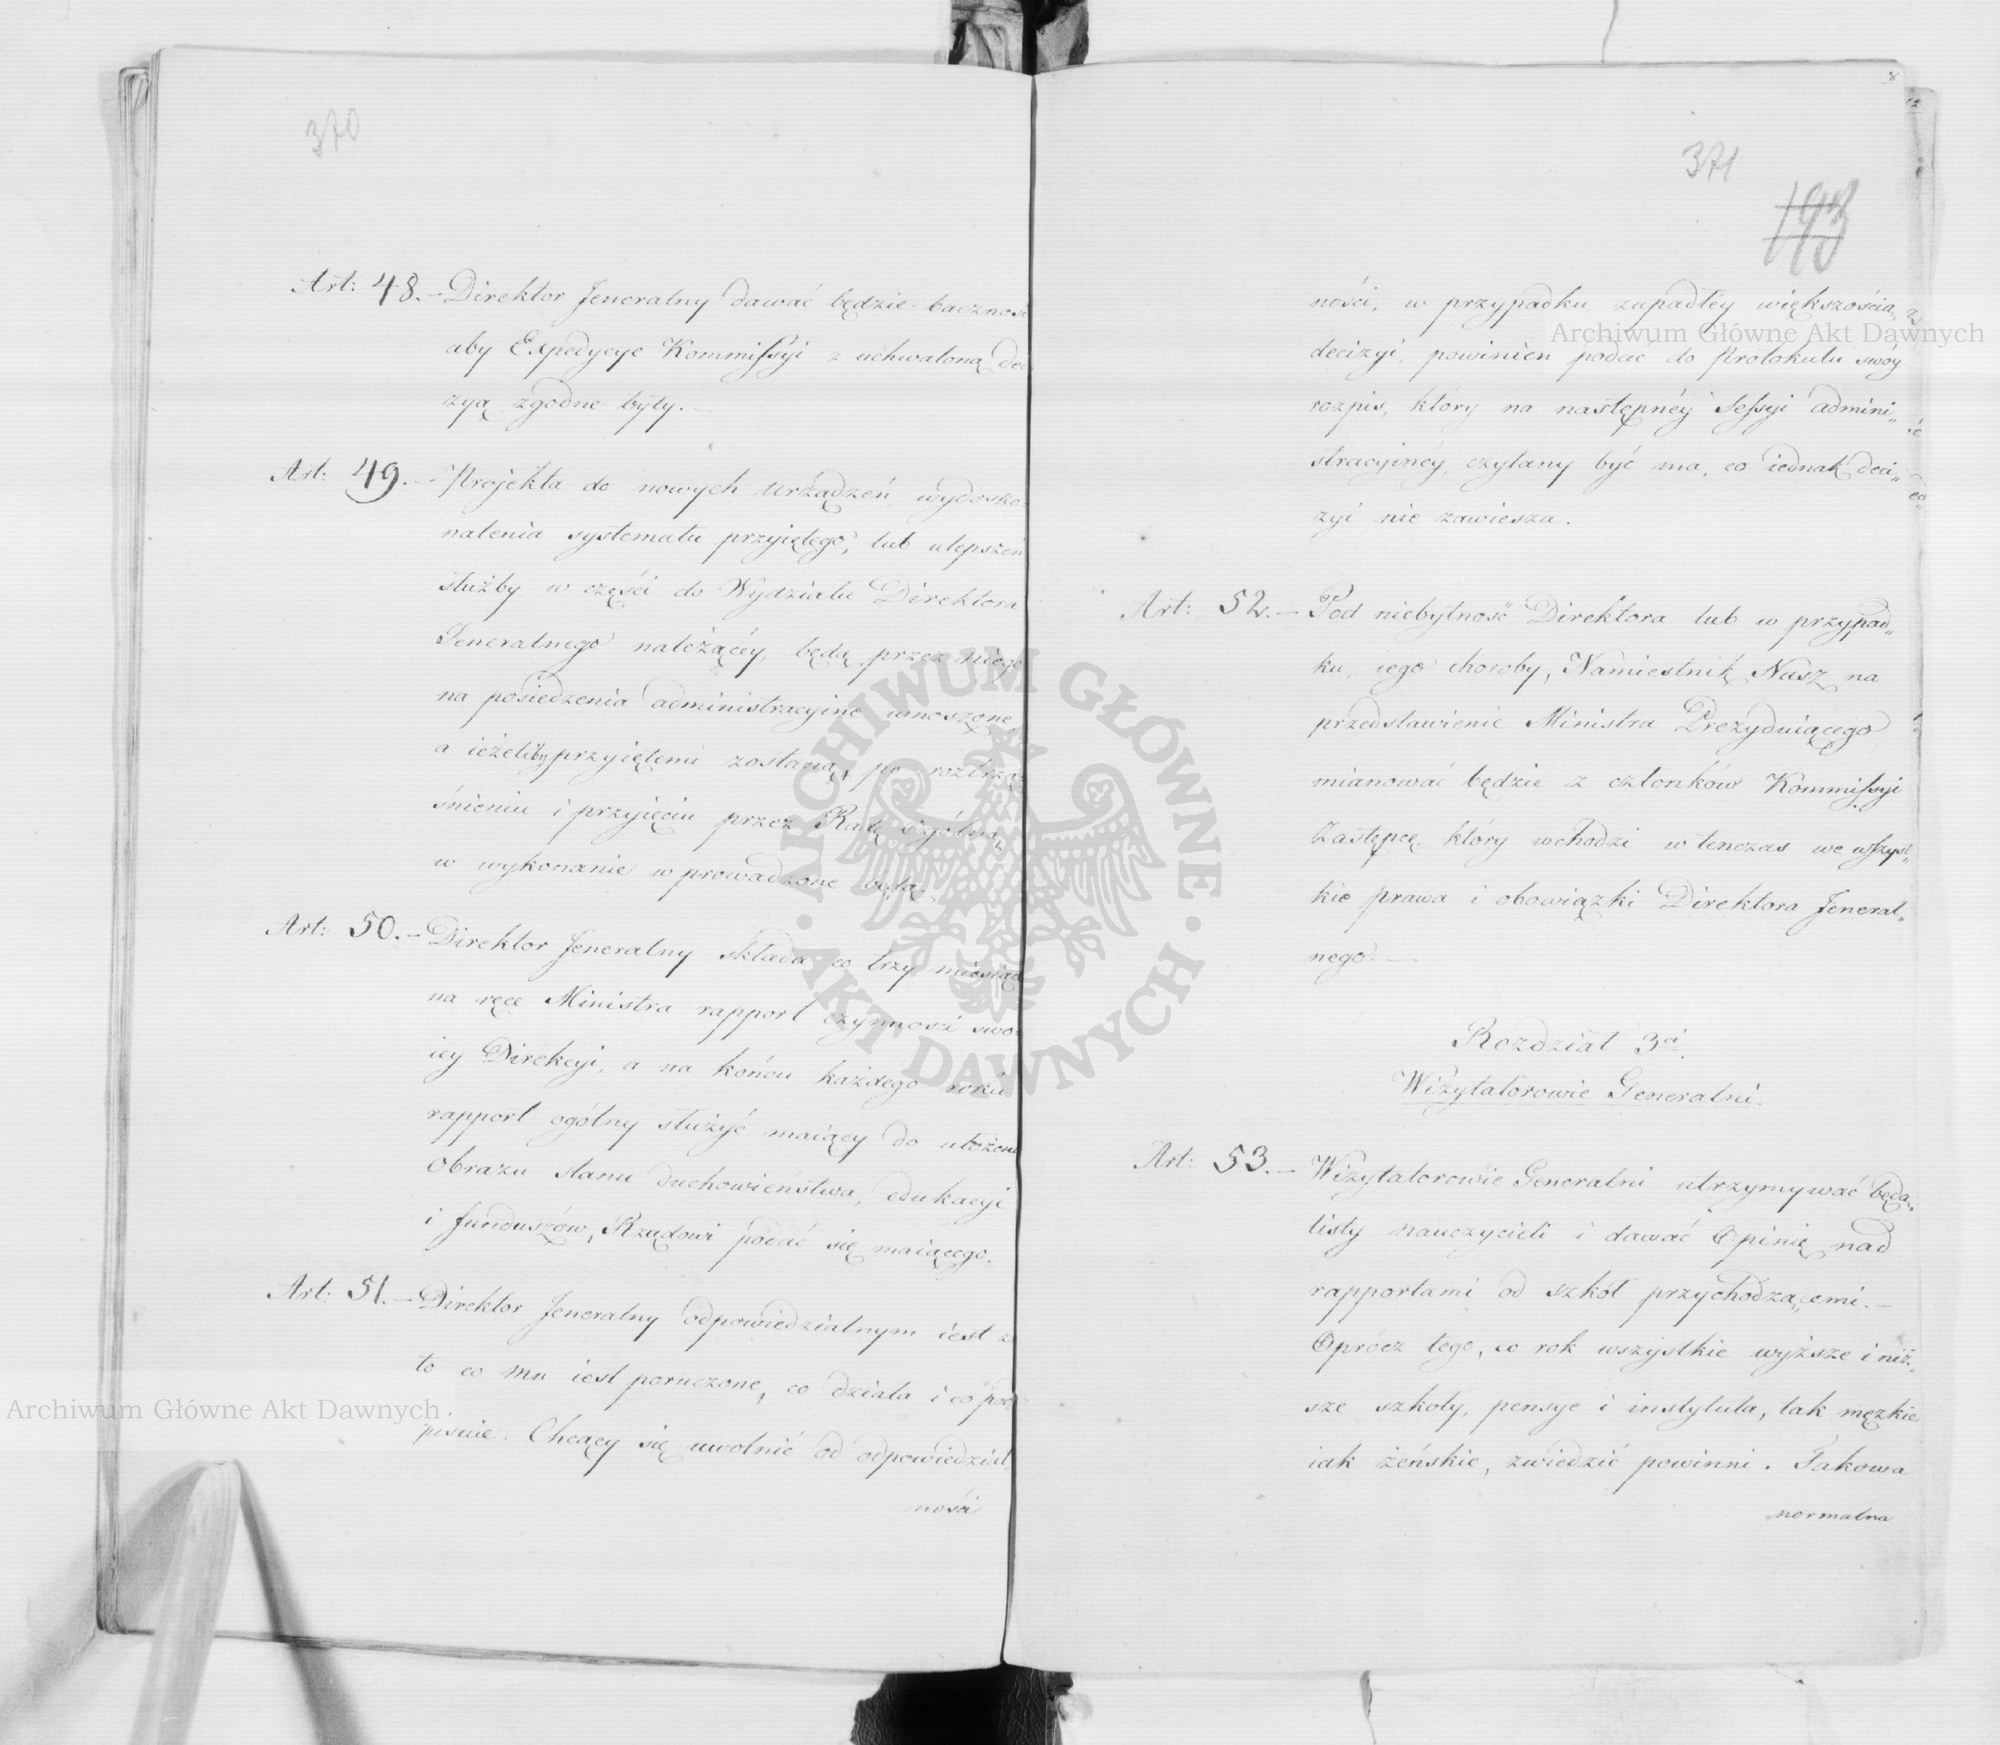 370
Art: 48.- Direktor Jeneralny dawać będzie baczność
aby Expedycye Kommissyi z uchwaloną de
zyą zgodne były.-
Art: 49.- Projekta do nowych urządzeń, wydosko
nalenia systematu przyiętego, lub ulepszeń
służby w części do Wydziału Direktora
Jeneralnego należącey, będą przez niego
na posiedzenia administracyine wnoszone,
a ieżeliby przyiętemi zostaną, po roztrzą
śnieniu i przyięciu przez Radę Ogólną,
w wykonanie wprowadzone będą.
Art: 50.- Direktor Jeneralny składa co trzy miesiące
na ręce Ministra rapport czynności swo
iey Direkcyi, a na końcu każdego roku
rapport ogólny służyć maiący do ułożenia
Obrazu stanu duchowieństwa, edukacyi
i funduszów, Rządowi podać się maiącego.
Art: 51.- Direktor Jeneralny odpowiedzialnym iest z
to co mu iest poruczone, co działa i co pod
pisuie. Chcący się uwolnić od odpowiedzial
ności
8
371
193
ności, w przypadku zapadłéy większością
decizyi, powinien podać do Protokułu swóy
rozpis, który na następnéy Sessyi admini„
stracyinéy, czytany być ma, co iednak deci„
zyi nie zawiesza.
Art: 52.- Pod niebytność Direktora lub w przypad„
ku, iego choroby, Namiestnik Nasz na
przedstawienie Ministra Prezyduiącego
mianować będzie z członków Kommissyi
Zastępcę, który wchodzi w tenczas we wszyst„
kie prawa i obowiązki Direktora Jeneral„
nego.-
Rozdział 3ci.
Wizytatorowie Generalni.
Art: 53.- Wizytatorowie Generalni utrzymywać będą
listy nauczycieli i dawać Opinię nad
rapportami od szkół przychodzącemi.-
Oprócz tego, co rok wszystkie wyższe i niż„
sze szkoły, pensye i instytuta, tak męzkie
iak żeńskie, zwiedzić powinni. Takowa
normalna
Archiwum Główne Akt Dawnych
Archiwum Główne Akt Dawnych
ARCHIWUM GŁÓWNE · AKT DAWNYCH ·